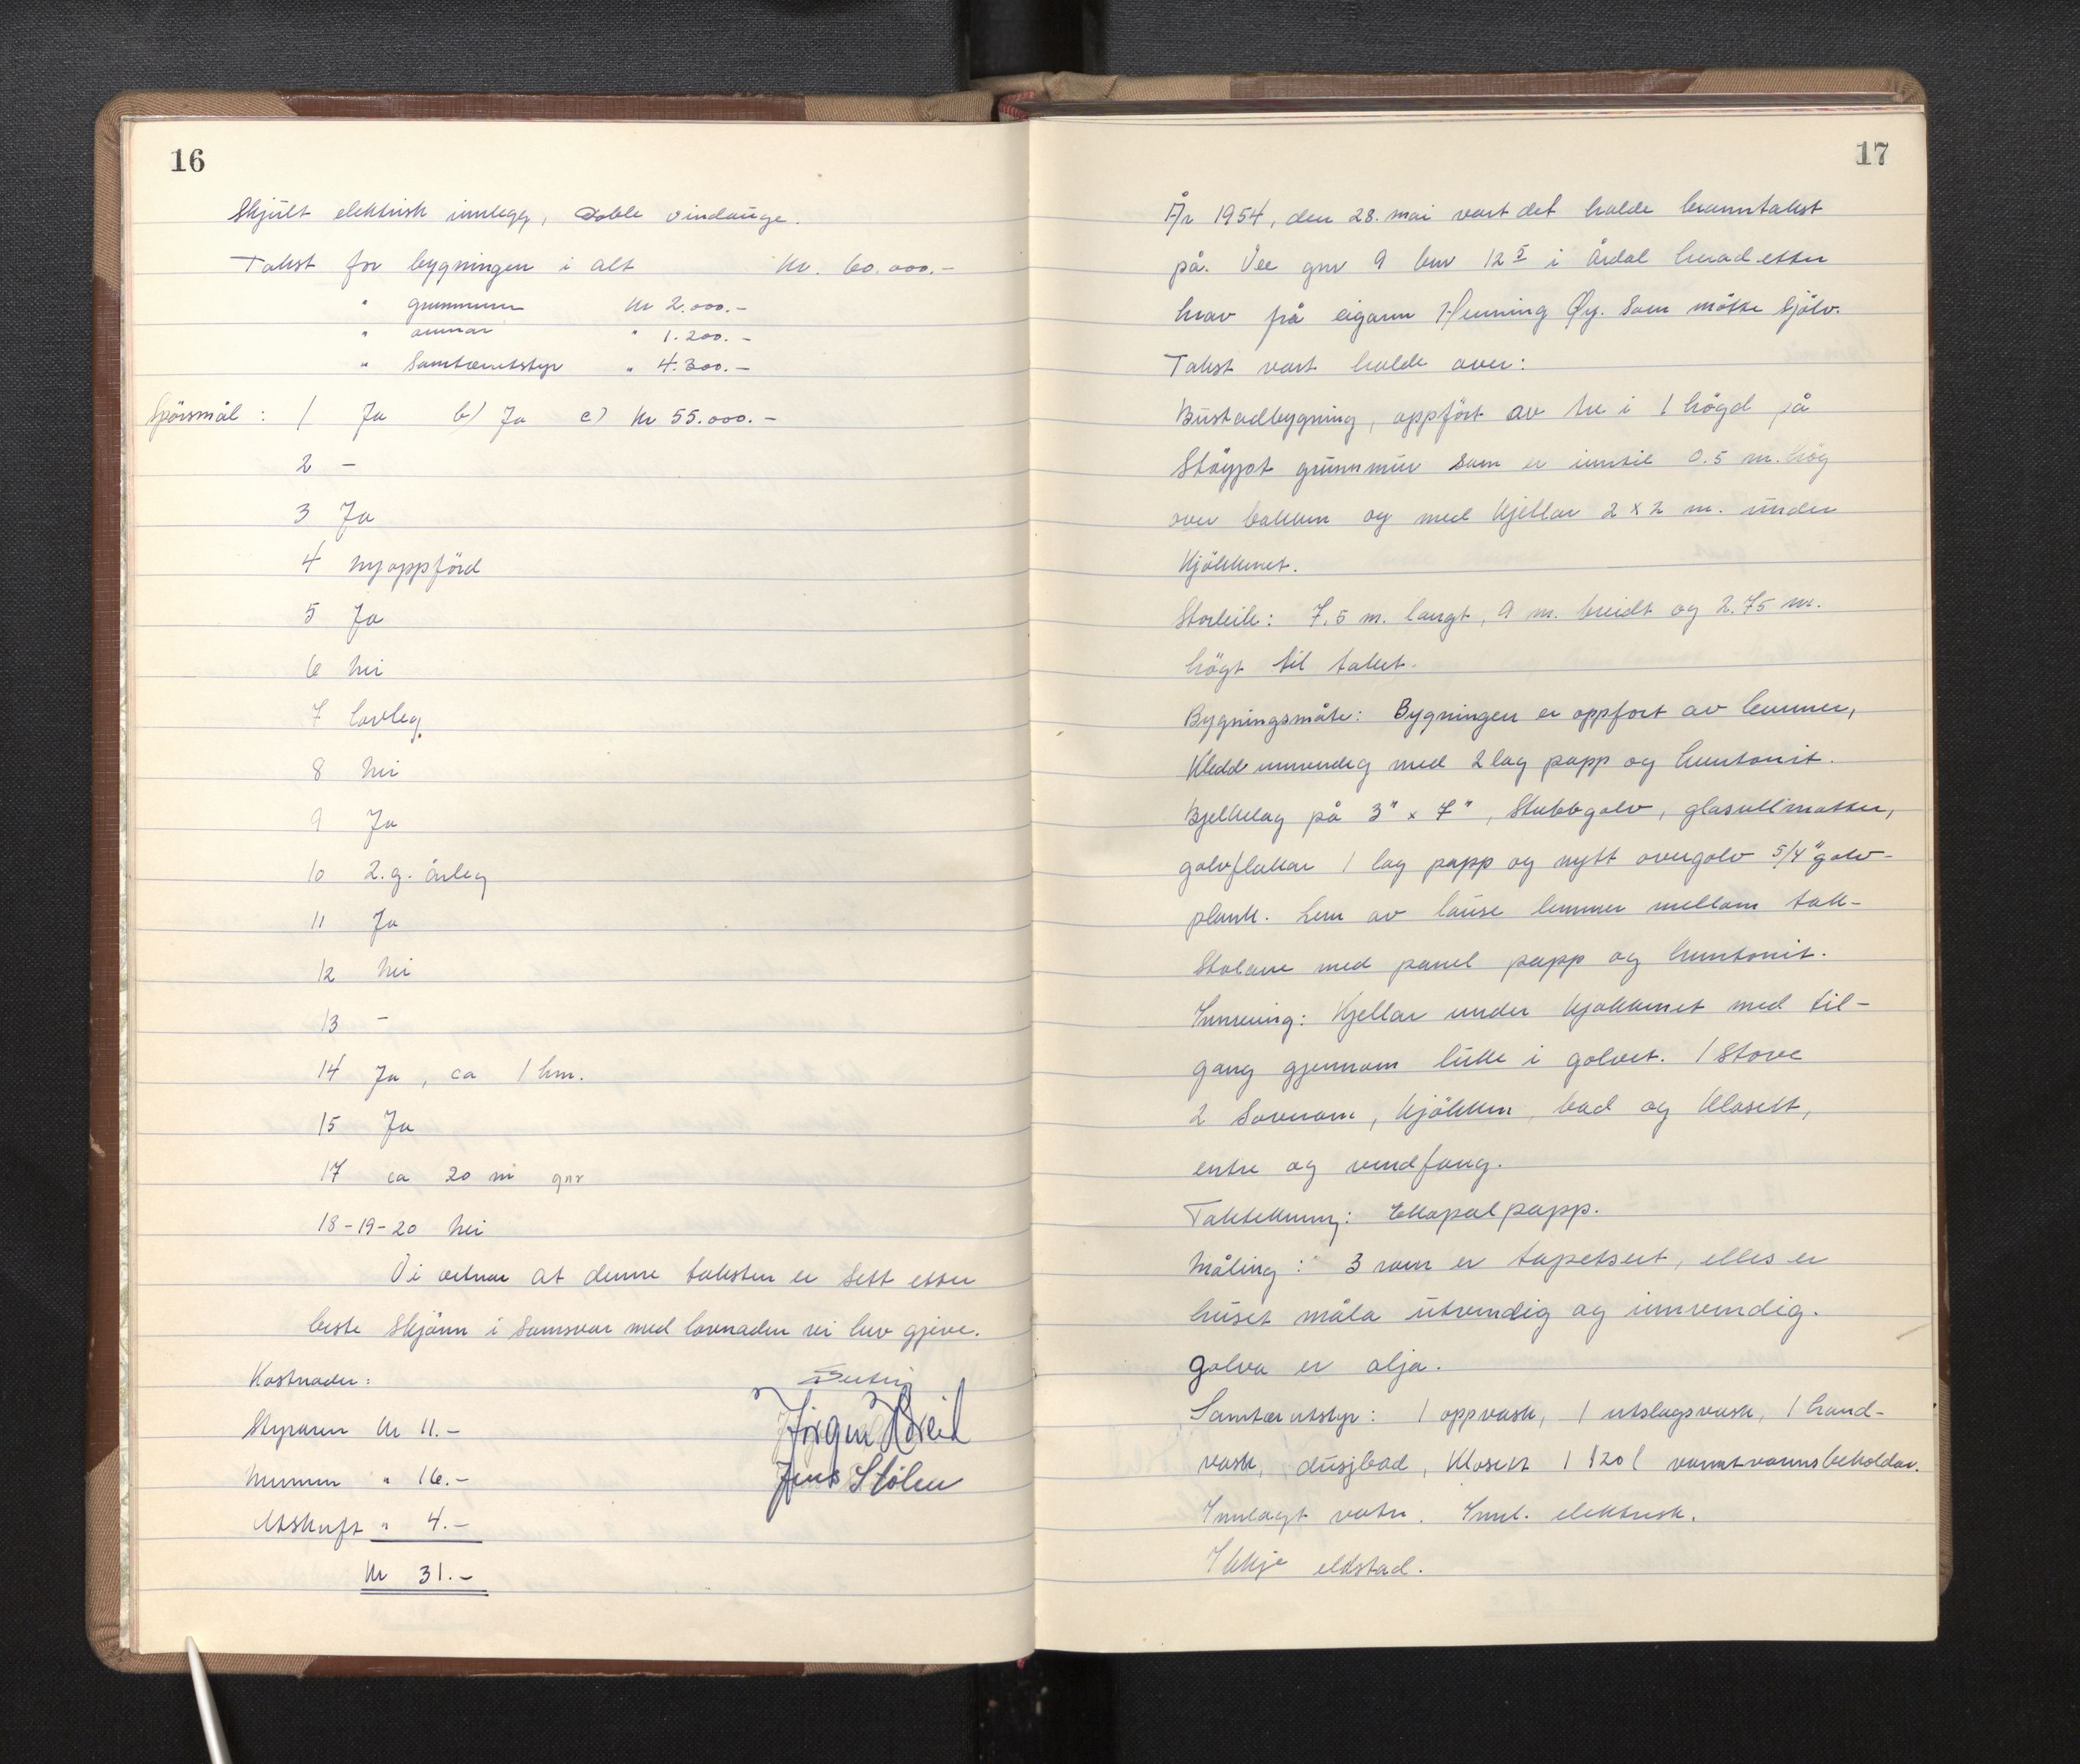 16
Skjult elektrisk innlegg, Doble vindauge.
Takst for bygningen i alt kr. 60.000.-
" grunnmur kr 2.000.-
" annar " 1.200.-
" Sanitærutstyr " 4.300.-
Spörsmål : 1 Ja b) Ja c) kr 55.000.-
2 -
3 Ja
4 nyoppförd
5 Ja
6 nei
7 lovleg
8 nei
9 Ja
10 2.g. årleg
11 Ja
12 nei
13 -
14 Ja, ca 1 km.
15 Ja
17 ca 20 m
18-19-20 nei
Vi vitnar at denne taksten er sett etter
beste skjönn i samsvar med lovnaden vi hev gjeve.
Kostnader:
Styraren kr 11.-
Jörgen Hovit
nemnn " 16.-
Jens Stölen
Utskrift " 4.-
kr 31.-
17
År 1954, den 28. mai vart det halde branntakst
på. Vee gnr 9 bnr 125 i Årdal herad etter
krav frå eigaren Henning Øy. som mötte sjölv.
Takst vart halde over:
Bustadbygning, oppfört av tre i 1 högd på
Stöypt grunnmur som er inntil 0.5 m. hög
over bakken og med kjellar 2 x 2 m. under
kjökkenet.
Storleik: 7.5 m. langt, 9 m. breidt og 2.75 m.
högt til taket.
Bygningsmåte: Bygningen er oppfort av lemmer,
kledd innvendig med 2 lag papp og huntonit.
Bjelkelag på 3" x 7", Stubbgolv, glasullmatter,
golvflakar 1 lag papp og nytt overgolv 5/4" golv-
plank. Lem av lause lemmer mellom tak-
stolane med panel papp og huntonit.
Innreiing: Kjellar under kjøkkenet med til-
gang gjennom luke i golvet. 1 stove
2 soverom, kjökken, bad og klosett,
entre og vindfang.
Taktekking: Ekapalpapp.
Måling : 3 rom er tapetsert, elles er
huset måla utvendig og innvendig.
golva er olja.
Sanitærutstyr : 1 oppvask, 1 utslagsvask, 1 hand-
vask, dusjbad, klosett 1 120 l varmtvannsbeholdar.
Innlagt vatn. Innl. elektrisk.
Ikkje eldstad.